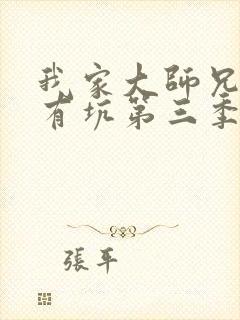 我家大師兄
有坑第三季
張平